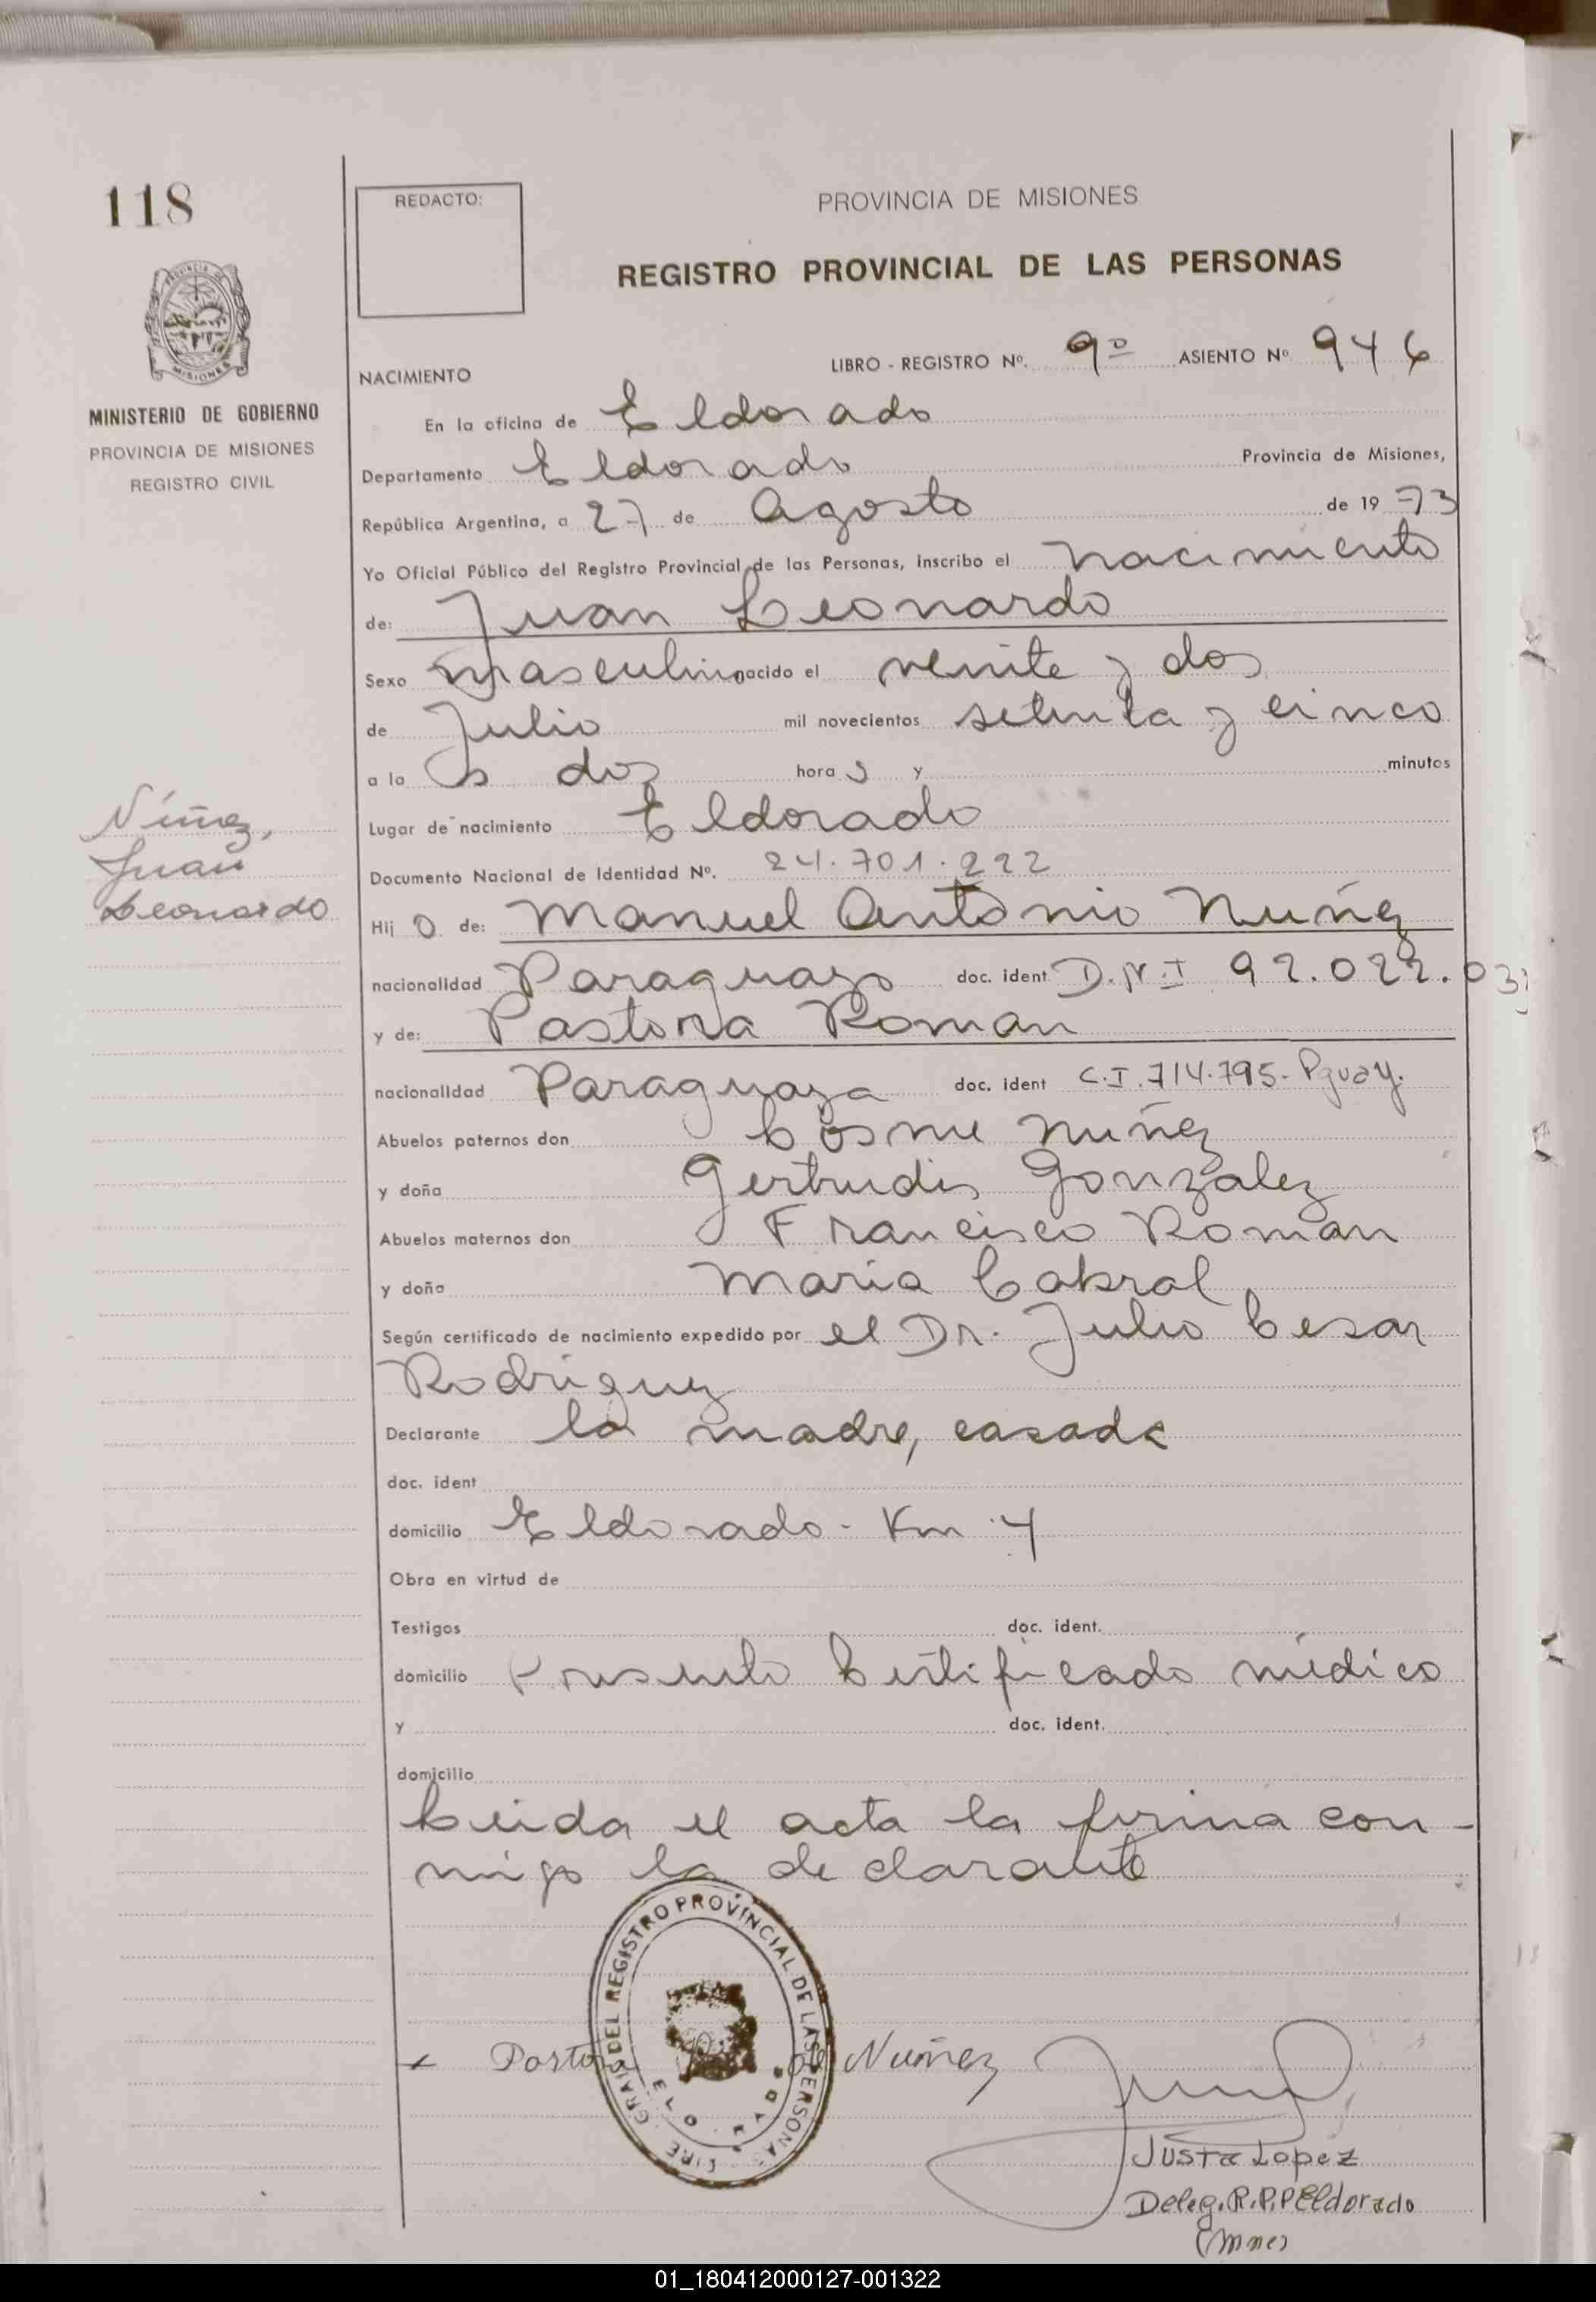 118
REDACTO:
PROVINCIA DE MISIONES
REGISTRO PROVINCIAL DE LAS PERSONAS
MINISTERIO DE GOBIERNO
PROVINCIA DE MISIONES
REGISTRO CIVIL
LIBRO - REGISTRO Nº. 9º ASIENTO Nº 946
NACIMIENTO
En la oficina de Eldorado
Departamento Eldorado Provincia de Misiones,
República Argentina, a 27 de Agosto de 1973
Yo Oficial Público del Registro Provincial de las Personas, inscribo el nacimiento
de: Juan Leonardo
Sexo masculino nacido el veinte y dos
de Julio mil novecientos setenta y cinco
a las dos horas y minutos
Núñez,
Juan
Leonardo
Lugar de nacimiento Eldorado
Documento Nacional de Identidad Nº. 24.701.222
Hijo de: Manuel Antonio Nuñez
nacionalidad Paraguayo doc. ident D.N.I 92.022.03
y de: Pastora Roman
nacionalidad Paraguaya doc. ident C.I. 714.795- Pguay.
Abuelos paternos don Cosme Nuñez
y doña Gertrudis Gonzalez
Abuelos maternos don Francisco Roman
y doña Maria Cabral
Según certificado de nacimiento expedido por el Dr. Julio Cesar
Rodriguez
Declarante la madre, casada
doc. ident
domicilio Eldorado - Km 4
Obra en virtud de
Testigos doc. ident.
domicilio Presento Certificado médico
y doc. ident.
domicilio
Leida el acta la firma con-
migo la declarante
REGISTRO PROVINCIAL DE LAS PERSONAS
Pastora Nuñez
Justa Lopez
Deleg. R.P.P Eldorado
(Mnes)
01_180412000127-001322